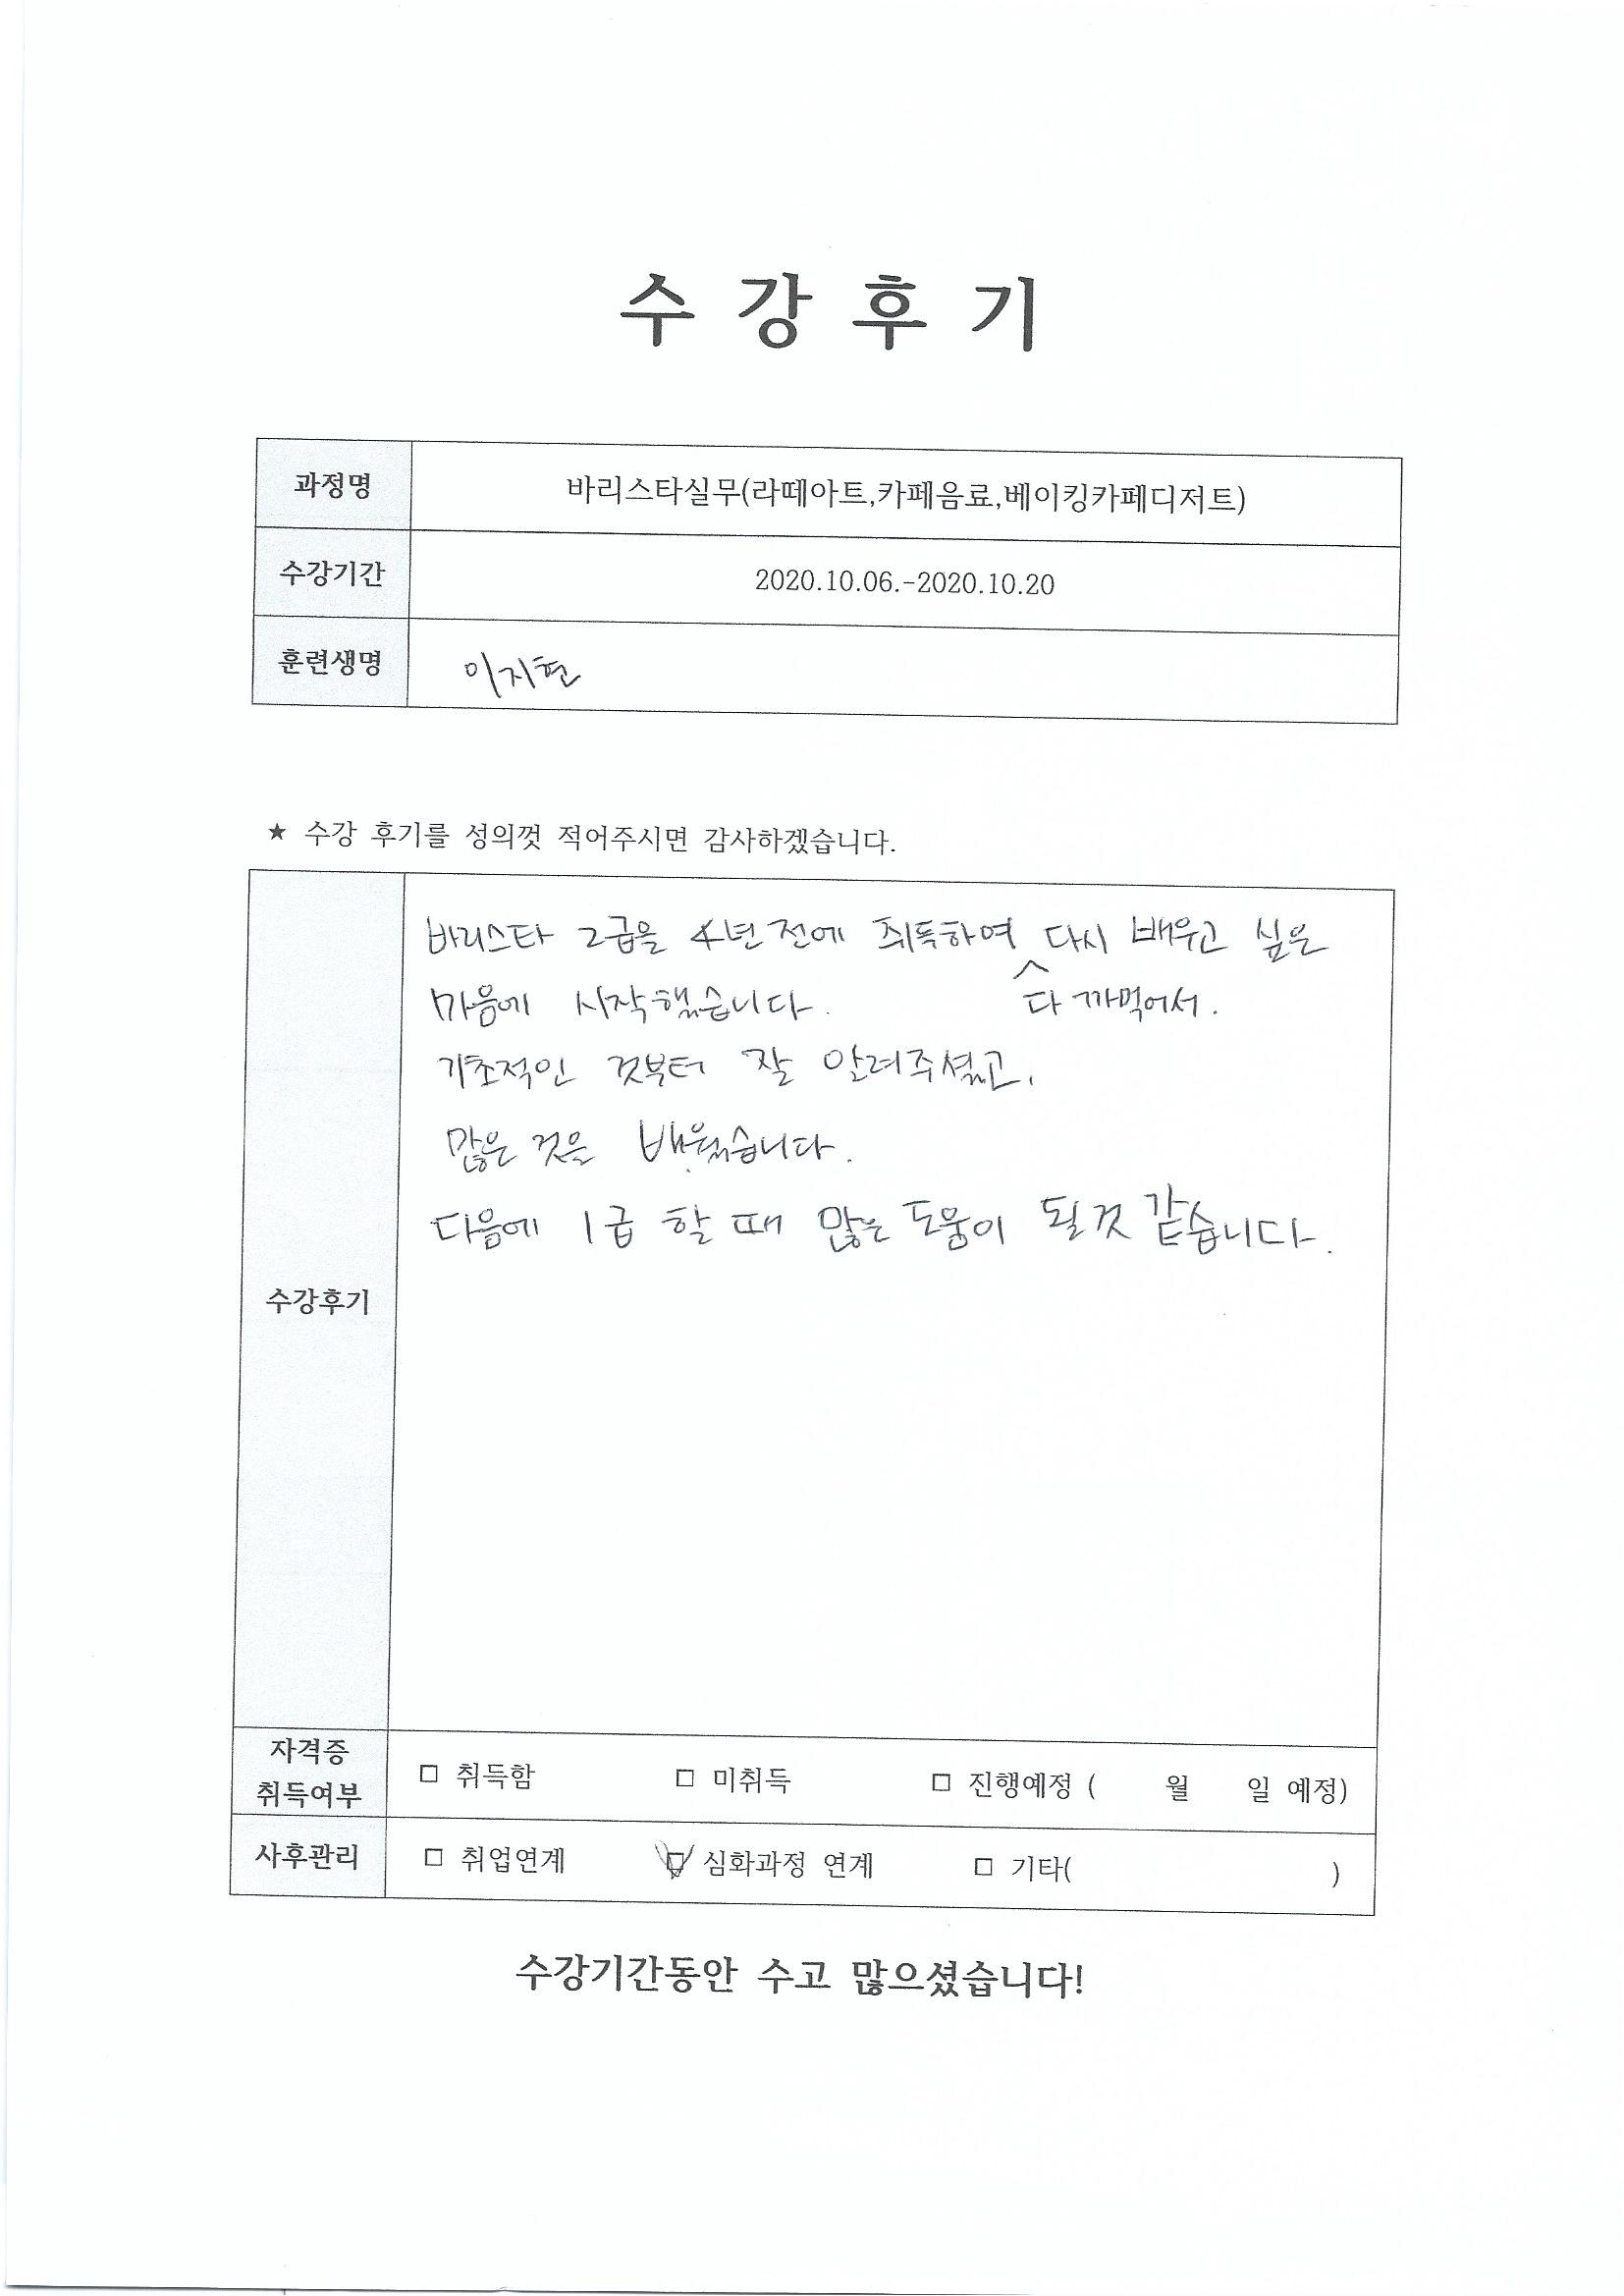 수 강 후 기
과정명 바리스타실무(라떼아트,카페음료,베이킹카페디저트)
수강기간 2020.10.06.-2020.10.20
훈련생명 이지현
★ 수강 후기를 성의껏 적어주시면 감사하겠습니다.
바리스타 2급을 4년 전에 취득하여 다시 배우고 싶은
마음에 시작했습니다. 다 까먹어서.
기초적인 것부터 잘 알려주셨고,
많은 것을 배웠습니다.
다음에 1급 할 때 많은 도움이 될것 같습니다.
수강후기
자격증
취득여부
□ 취득함 □ 미취득 □ 진행예정 ( 월 일 예정)
사후관리 □ 취업연계 □ 심화과정 연계 □ 기타( )
수강기간동안 수고 많으셨습니다!